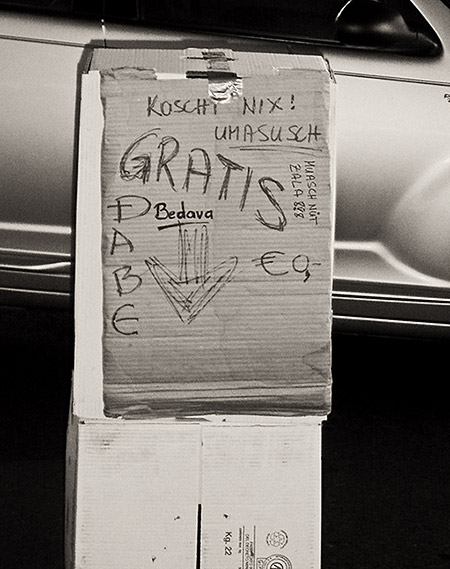 KOSCHT NIX!
UMASUSCH
GRATIS
MUASCH NÜT
ZALA
DABE
Bedava
€ 0,-
Kg. 22